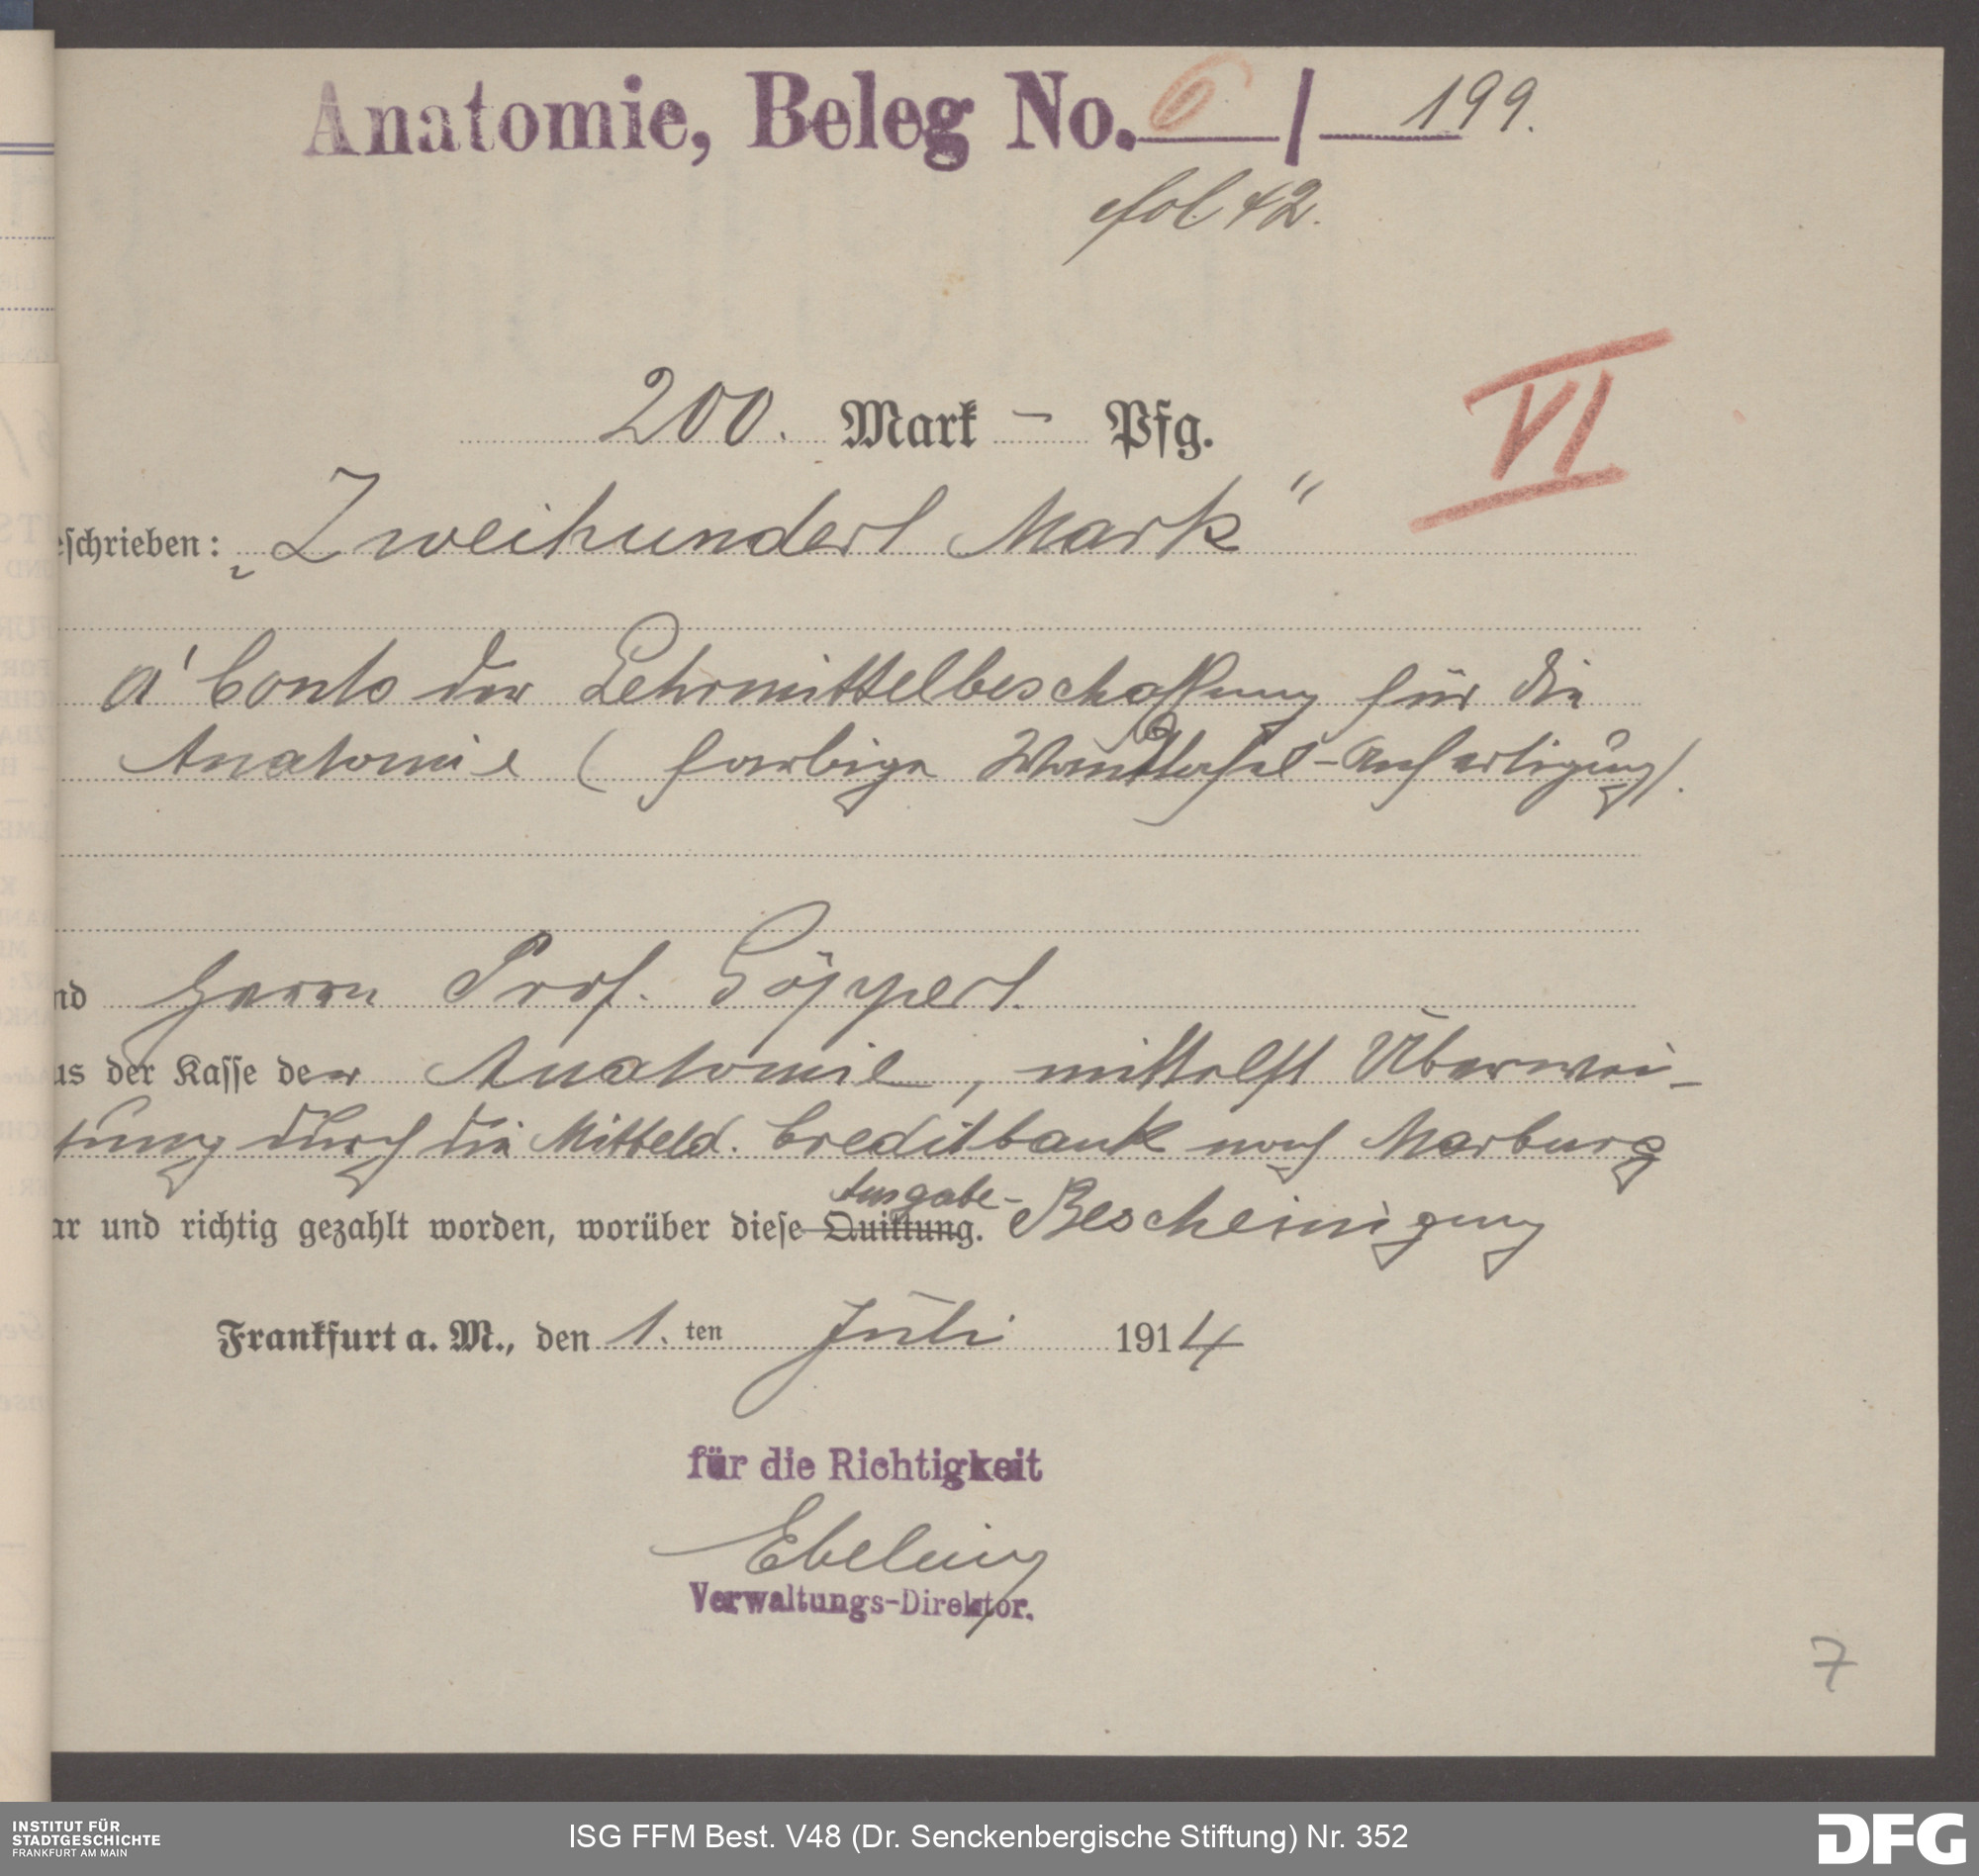 Anatomie, Beleg No. 6 / 199.
fol 42.
200. Mark – Pfg.
VI
eschrieben: „Zweihundert Mark“
a' Conto der Lehrmittelbeschaffung für die
Anatomie (farbige Wandtafel-Anfertigung).
nd Herrn Prof. Göppert.
us der Kasse der Anatomie, mittelst Überwei-
sung durch die Mitteld. Creditbank nach Marburg
Ausgabe-
ar und richtig gezahlt worden, worüber diese Quittung. Bescheinigung
Frankfurt a. M., den 1. ten Juli 1914
für die Richtigkeit
Ebeling
Verwaltungs-Direktor.
7
INSTITUT FÜR
STADTGESCHICHTE
FRANKFURT AM MAIN
ISG FFM Best. V48 (Dr. Senckenbergische Stiftung) Nr. 352
DFG